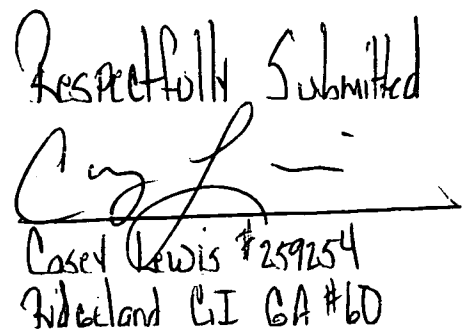 Respectfully Submitted
Casey Lewis #259254
Ridgeland CI GA #60